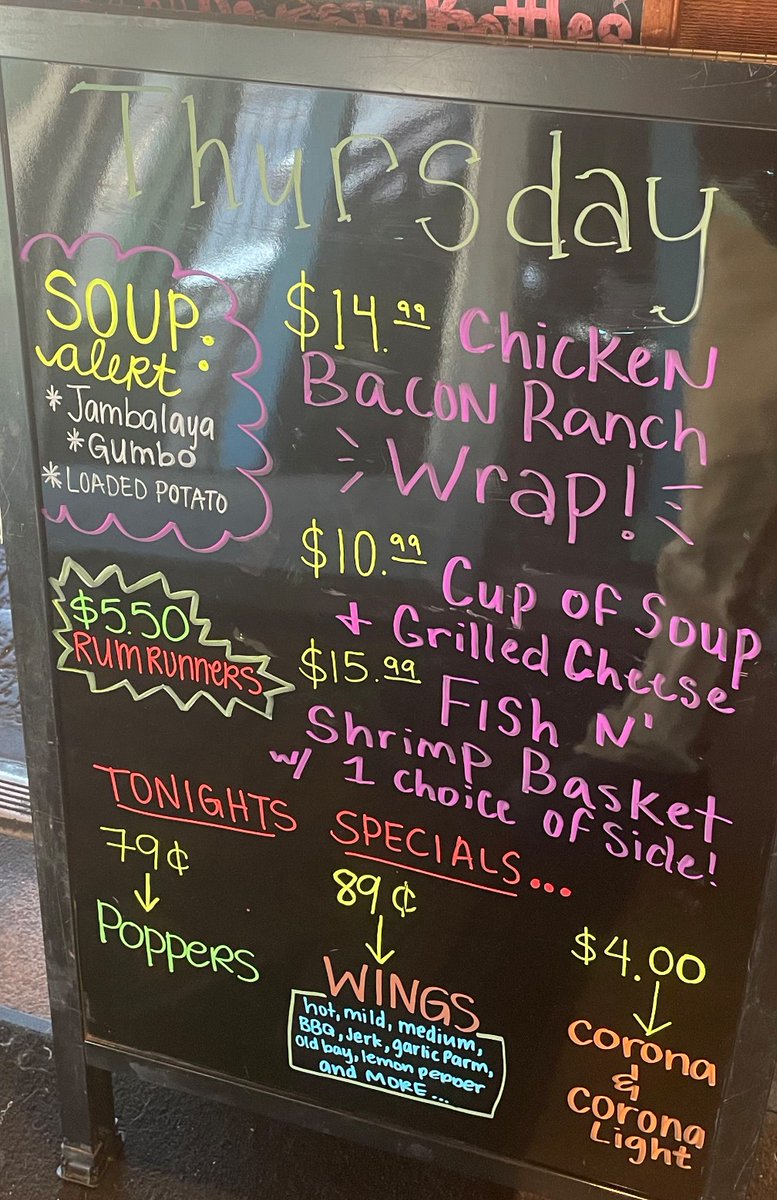 Bottles
Thursday
SOUP
alert:
*Jambalaya
*Gumbo
*LOADED POTATO
$5.50
RUM RUNNERS
$14.99 Chicken
Bacon Ranch
Wrap!
$10.99 Cup of Soup
+ Grilled Cheese
$15.99 Fish N'
Shrimp Basket
w/ 1 choice of side!
TONIGHTS SPECIALS...
79¢
Poppers
89¢
WINGS
hot, mild, medium,
BBQ, Jerk, garlic parm,
old bay, lemon pepper
and MORE...
$4.00
Corona
&
Corona
Light